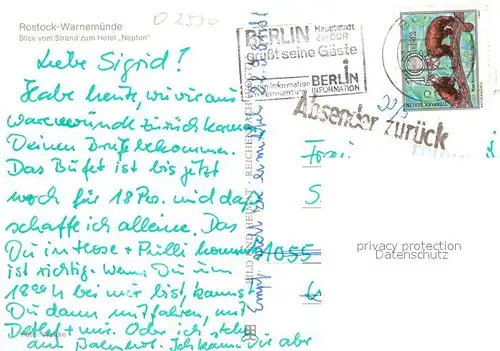 Rostock-Warnemünde
Blick vom Strand zum Hotel „Neptun"
O 2530
BERLIN Hauptstadt
der DDR
grüßt seine Gäste
Information BERLIN
INFORMATION
Absender zurück
Liebe Sigrid!
Habe heute, wie wir aus
Warnemünde zurück kamen
Deinen Brief bekommen.
Das Büfet ist bis jetzt
noch für 18 Pers. und das
schaffe ich alleine. Das
Du in Hose + Pulli kommst
ist richtig. Wenn Du um
18 00 h bei mir bist, kannst
Du dann mitfahren, mit
Detlef + mir. Oder ich
am Bahnhof. Ich kann Dir aber
BILD UND HEIMAT REICHENBACH
Frau
S.
1055
privacy protection
Datenschutz